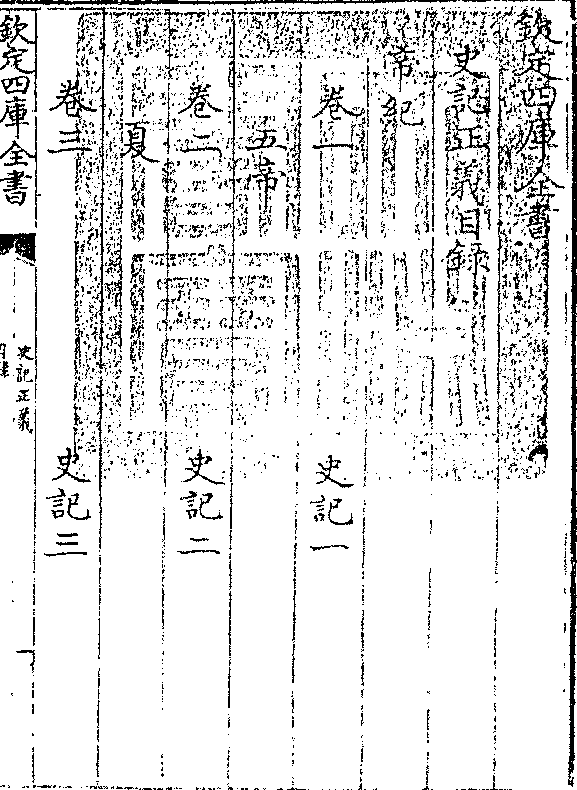 欽定四庫全書
史記正義目録
帝紀
卷一 史記一
五帝
卷二 史記二
夏
卷三 史記三
欽定四庫全書
史記正義
目録
一